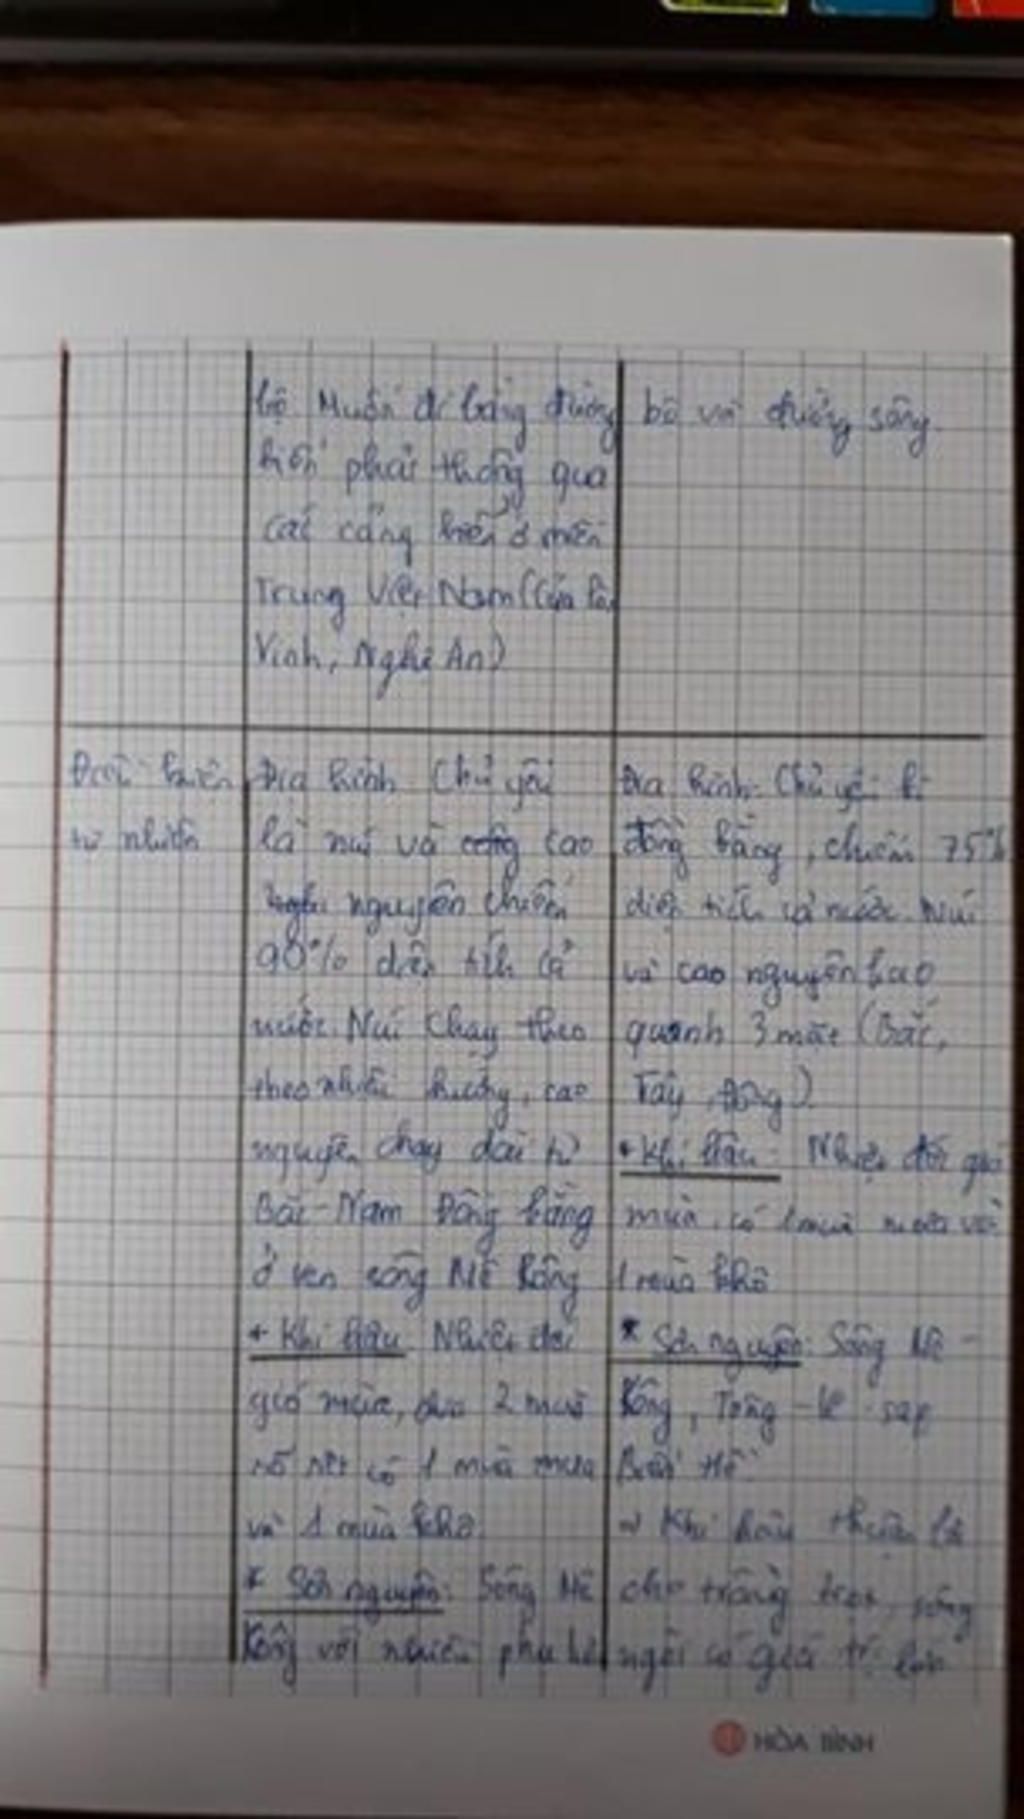 bộ. Muốn đi bằng đường
biển phải thông qua
các cảng biển ở miền
Trung Việt Nam (Cửa Lò,
Vinh, Nghệ An)
bộ và đường sông.
Điều kiện
tự nhiên
Địa hình Chủ yếu
là núi và cao
nguyên chiếm
90% diện tích cả
nước. Núi chạy theo
theo nhiều hướng, cao
nguyên chạy dài từ
Bắc-Nam Đồng bằng
ở ven sông Mê Kông
+ Khí hậu Nhiệt đới
gió mùa, 2 mùa
rõ rệt có 1 mùa mưa
và 1 mùa khô.
* Sơn nguyên: Sông Mê
Kông với nhiều phụ lưu
Địa hình: Chủ yếu là
đồng bằng, chiếm 75%
diện tích cả nước. Núi
và cao nguyên bao
quanh 3 mặt (Bắc,
Tây, Đông).
+ Khí hậu: Nhiệt đới gió
mùa, có 1 mùa mưa và
1 mùa khô
* Sơn nguyên: Sông Mê-
Kông, Tông-lê-sap
Biển Hồ
Khí hậu thuận lợi
cho trồng trọt, sông
ngòi có giá trị lớn
HÒA BÌNH